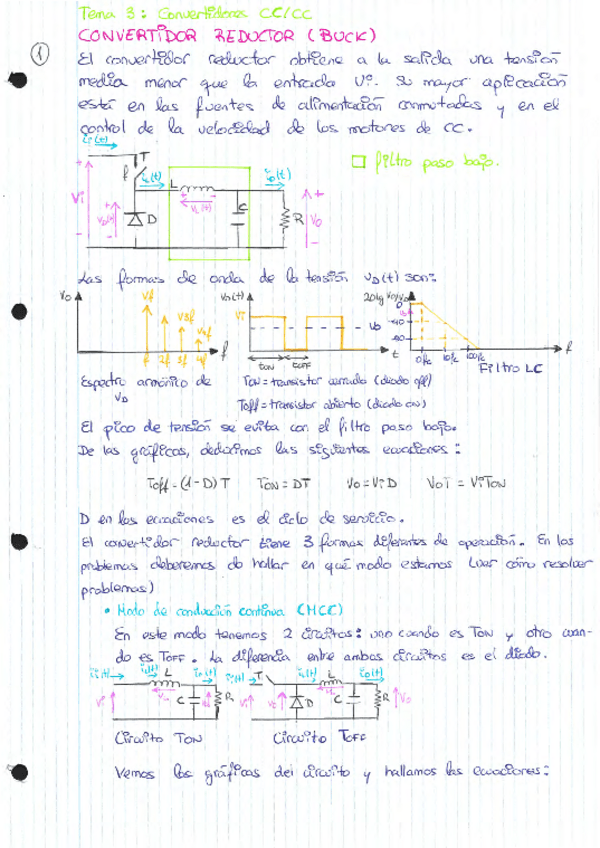 Tema 3: Convertidores CC/CC
CONVERTIDOR REDUCTOR (BUCK)
1
El convertidor reductor obtiene a la salida una tensión
media menor que la entrada Vi. Su mayor aplicación
está en las fuentes de alimentación conmutadas y en el
control de la velocidad de los motores de CC.
ii(t) T
f iL(t) L io(t)
filtro paso bajo.
Vi VD(t) D VL(t) C R Vo
Las formas de onda de la tensión VD(t) son:
VD Vf V3f f 2f 3f 4f f
VD(t) Vi Vo t
TON TOFF
20lg Vo/VD 0 -40 -80 fc 10fc 100fc f
Filtro LC
Espectro armónico de
VD
TON = transistor cerrado (diodo off)
Toff = transistor abierto (diodo on)
El pico de tensión se evita con el filtro paso bajo.
De las gráficas, deducimos las siguientes ecuaciones:
Toff = (1-D)T TON = DT Vo = ViD VoT = ViTON
D en las ecuaciones es el ciclo de servicio.
El convertidor reductor tiene 3 formas diferentes de operación. En los
problemas deberemos de hallar en qué modo estamos (ver cómo resolver
problemas)
• Modo de conducción continua (MCC)
En este modo tenemos 2 circuitos: uno cuando es TON y otro cuan-
do es TOFF. La diferencia entre ambos circuitos es el diodo.
ii(t) iL(t) L io(t) ii(t) T iL(t) L io(t)
Vi C R Vi D C R Vo
Circuito TON Circuito TOFF
Vemos las gráficas del circuito y hallamos las ecuaciones: